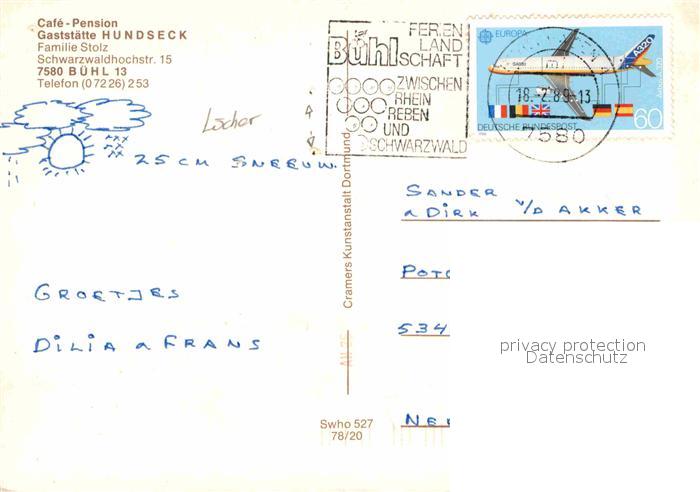 Café - Pension
Gaststätte HUNDSECK
Familie Stolz
Schwarzwaldhochstr. 15
7580 BÜHL 13
Telefon (07226) 253
Löcher
25 CM SNEEUW.
GROETJES
DILIA a FRANS
Cramers Kunstanstalt Dortmund
Swho 527
78/20
FERIEN
LAND
Bühl SCHAFT
ZWISCHEN
RHEIN
REBEN
UND
SCHWARZWALD
EUROPA
A320
18.-2.89-13
60
DEUTSCHE BUNDESPOST
7580
SANDER
a DIRK v/d AKKER
534
privacy protection
Datenschutz